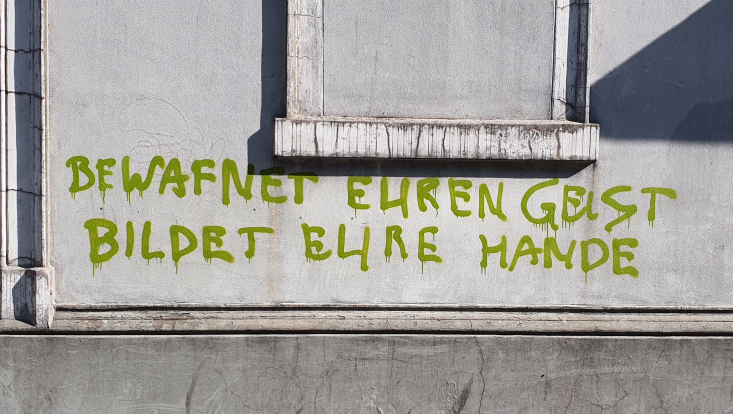 BEWAFNET EUREN GEIST
BILDET EURE HANDE